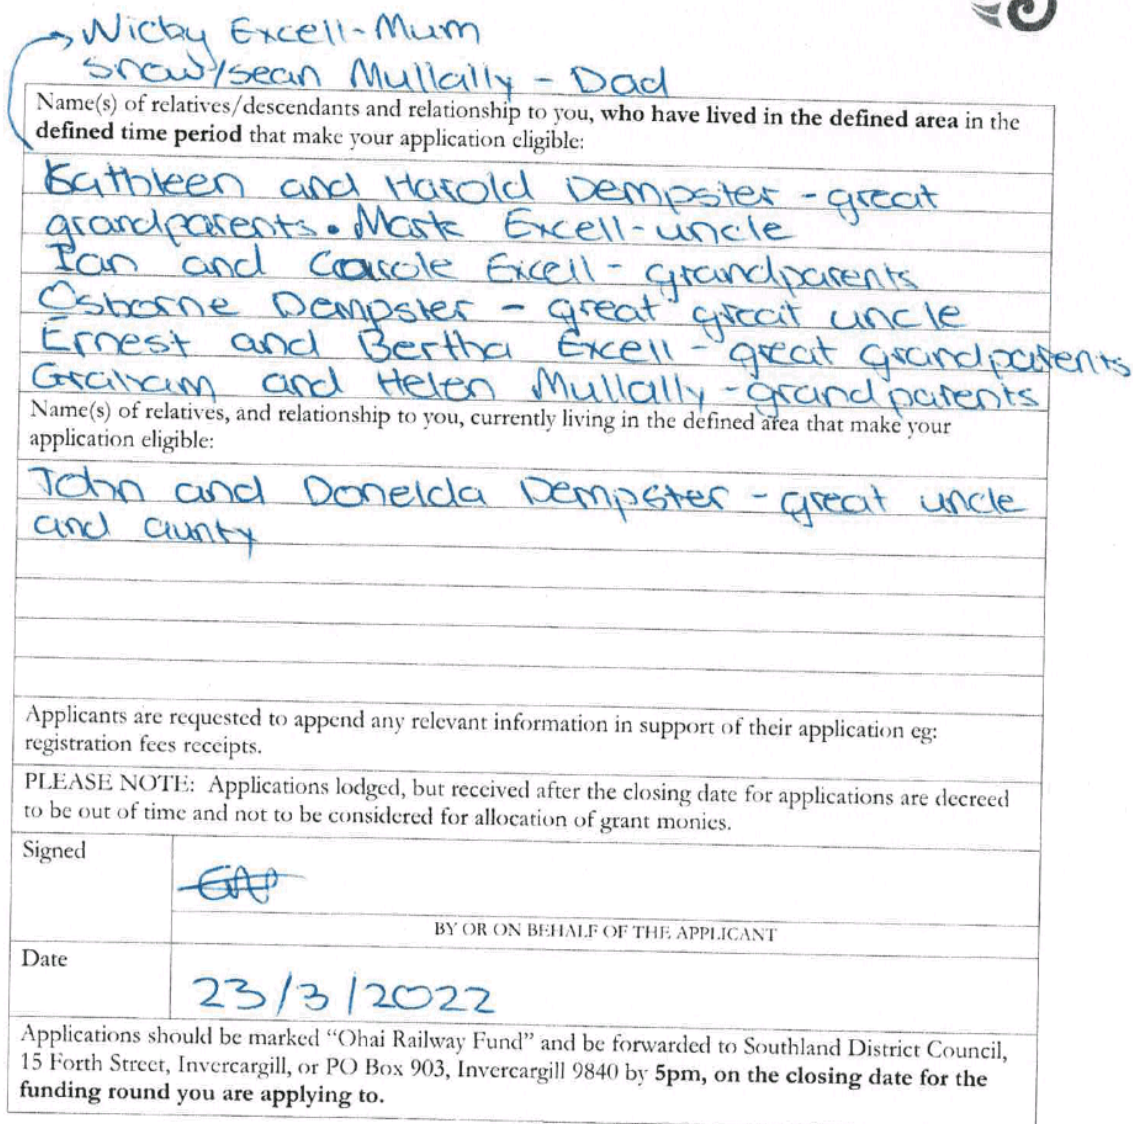 Nicky Excell-Mum
Snow/sean Mullally - Dad
Name(s) of relatives/descendants and relationship to you, who have lived in the defined area in the
defined time period that make your application eligible:
Kathleen and Harold Dempster - great
grandparents. Mark Excell-uncle
Ian and Carole Excell- grandparents
Osborne Dempster - great great uncle
Ernest and Bertha Excell - great grandparents
Graham and Helen Mullally - grandparents
Name(s) of relatives, and relationship to you, currently living in the defined area that make your
application eligible:
John and Donelda Dempster - great uncle
and aunty
Applicants are requested to append any relevant information in support of their application eg:
registration fees receipts.
PLEASE NOTE: Applications lodged, but received after the closing date for applications are decreed
to be out of time and not to be considered for allocation of grant monies.
Signed
BY OR ON BEHALF OF THE APPLICANT
Date
23/3/2022
Applications should be marked "Ohai Railway Fund" and be forwarded to Southland District Council,
15 Forth Street, Invercargill, or PO Box 903, Invercargill 9840 by 5pm, on the closing date for the
funding round you are applying to.